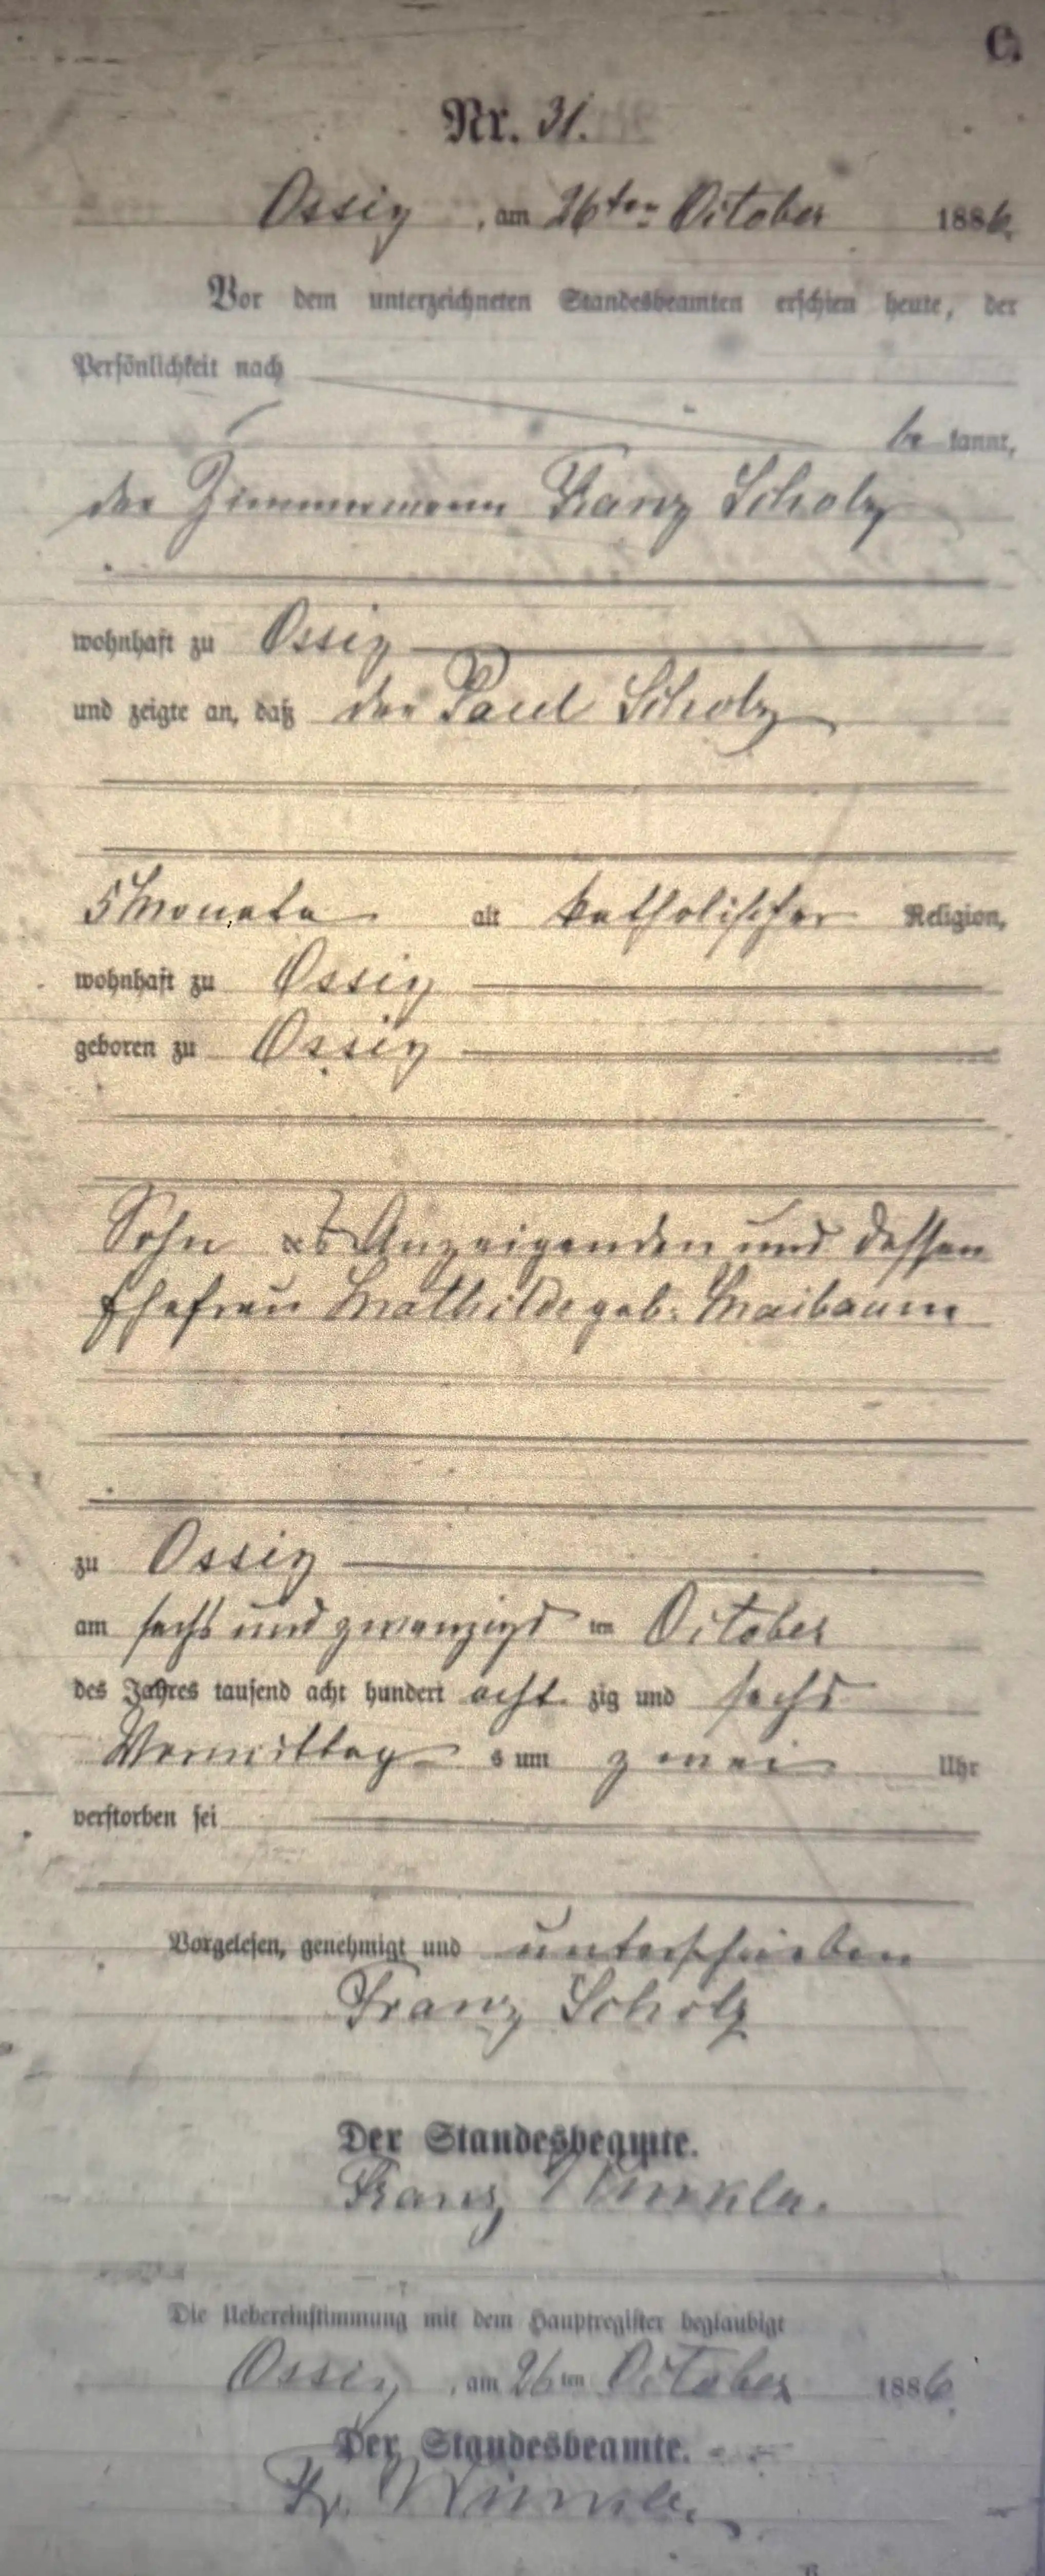 C.
Nr. 31.
Ossig, am 26ten October 1886.
Vor dem unterzeichneten Standesbeamten erschien heute, der
Persönlichkeit nach
be kannt,
der Zimmermann Franz Scholz
wohnhaft zu Ossig
und zeigte an, daß der Paul Scholz
5 Monate alt katholischer Religion,
wohnhaft zu Ossig
geboren zu Ossig
Sohn des Anzeigenden und dessen
Ehefrau Mathilde geb. Maibaum
zu Ossig
am sechs und zwanzigs ten October
des Jahres tausend acht hundert acht zig und sechs
Vormittag s um zwei Uhr
verstorben sei
Vorgelesen, genehmigt und unterschrieben
Franz Scholz
Der Standesbeamte.
Franz Winkler.
Die Uebereinstimmung mit dem Hauptregister beglaubigt
Ossig, am 26ten October 1886.
Der Standesbeamte.
Fr. Winkler.